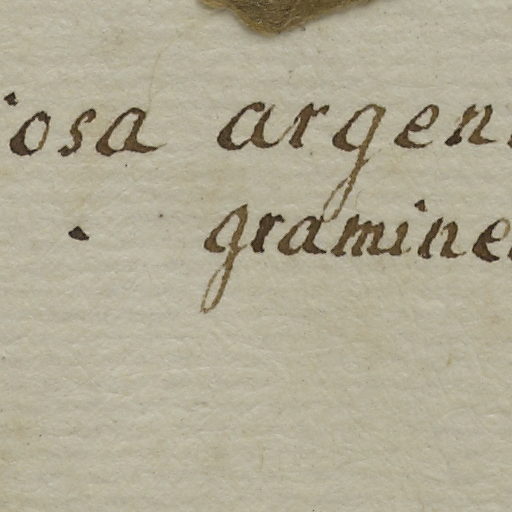 iosa argen
. gramine